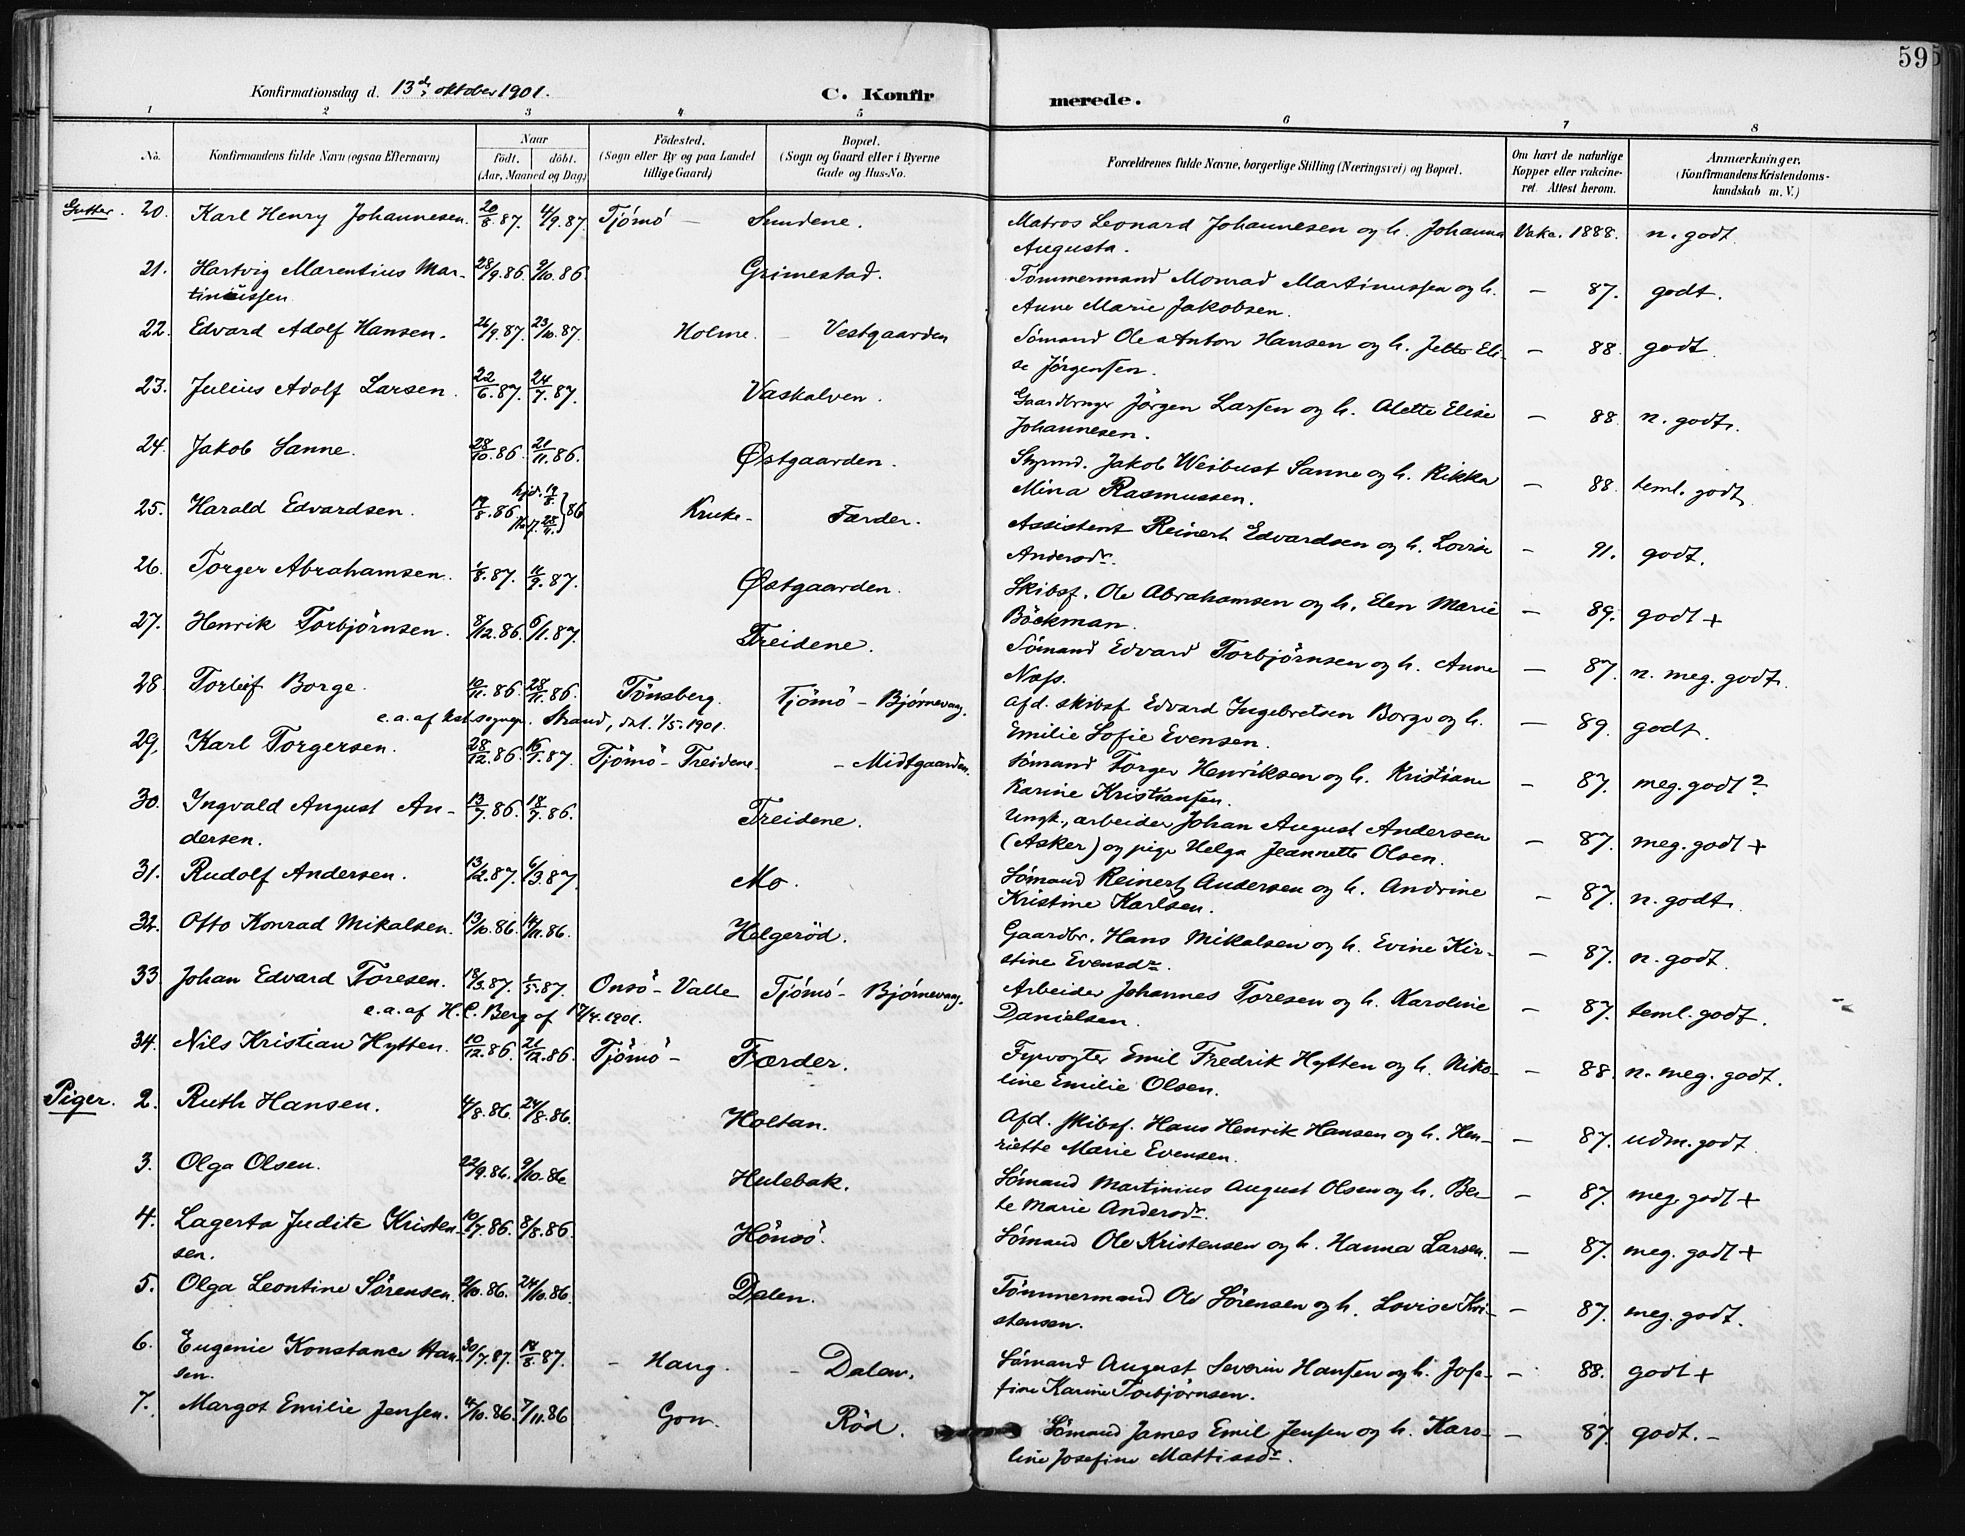 595
Konfirmationsdag d. 13de oktober 1901.
C. Konfir
merede.
1 2 3 4 5 6 7 8
No.
Konfirmandens fulde Navn (ogsaa Efternavn)
Naar
födt. döbt.
(Aar, Maaned og Dag)
Födested.
(Sogn eller By og paa Landet
tillige Gaard)
Bopæl.
(Sogn og Gaard eller i Byerne
Gade og Hus-No.
Forældrenes fulde Navne, borgerlige Stilling (Næringsvei) og Bopæl.
Om havt de naturlige
Kopper eller vakcine-
ret. Attest herom.
Anmærkninger.
(Konfirmandens Kristendoms-
kundskab m. V.)
Gutter. 20. Karl Henry Johannesen. 20/8.87. 4/9.87. Tjömö — Sundene. Matros Leonard Johannesen og h. Johanna Vakc. 1888. n. godt
Augusta.
21. Hartvig Marentius Mar- 28/9.86 9/10.86 Grimestad. Tømmermand Monrad Martinussen og h. — 87. godt.
tinussen Anne Marie Jakobsen.
22. Edvard Adolf Hansen. 26/9.87. 23/10.87. Holme — Vestgaarden Sömand Ole Anton Hansen og h. Jette Eli- — 88. godt.
se Jörgensen.
23. Julius Adolf Larsen. 22/6.87. 24/7.87. Vaskalven. Gaardbruger Jörgen Larsen og h. Alette Elise — 88. n. godt.
Johannesen.
24. Jakob Sanne. 28/10.86. 21/11.86. Østgaarden. Styrmd. Jakob Weibust Sanne og h. Rikka — 88. teml. godt
Mina Rasmussen.
25. Harald Edvardsen. 19/8.86. hjd. 19/8. 86 Kruke — Færder. Assistent Reinert Edvardsen og h. Lovise — 91. godt.
Andersdr.
26. Torger Abrahamsen. 1/8.87. 11/9.87. Østgaarden. Skibsf. Ole Abrahamsen og h. Elen Marie — 89. godt +
Böckman.
27. Henrik Torbjörnsen. 8/12.86. 6/1.87. Treidene. Sömand Edvard Torbjörnsen og h. Anne — 87. n. meg. godt.
Næss.
28. Torleif Borge. 10/11.86. 28/11.86. Tönsberg. Tjömö — Björnevaag. Afd. skibsf. Edvard Ingebretsen Borge og h. — 89. godt.
e.a. af Strand, dat. 1/5.1901. Emilie Sofie Evensen.
29. Karl Torgersen. 28/12.86. 16/1.87. Tjömö — Treidene. — Midtgaarden. Sömand Torger Henriksen og h. Kristiane — 87. meg. godt?
Karine Kristiansen.
30. Ingvald August An- 13/7.86. 18/7.86. Treidene. Ungk., arbeider Johan August Andersen — 87. meg. godt +
dersen. (Asker) og pige Helga Jeannette Olsen.
31. Rudolf Andersen. 13/2.87. 6/3.87. Mo. Sömand Reinert Andersen og h. Andrine — 87. n. godt.
Kristine Karlsen.
32. Otto Konrad Mikalsen. 13/10.86. 14/11.86. Helgeröd. Gaardbr. Hans Mikalsen og h. Evine Kir- — 87. n. godt.
stine Evensdr.
33. Johan Edvard Toresen. 18/3.87. 1/5.87. Onsö — Valle Tjömö — Björnevaag. Arbeider Johannes Toresen og h. Karoline — 87. teml. godt.
e.a. af H.C. Berg af 17/4.1901. Danielsen.
34. Nils Kristian Hytten. 10/12.86. 21/12.86. Tjömö — Færder. Fyrvogter Emil Fredrik Hytten og h. Niko- — 88. n. meg. godt.
line Emilie Olsen.
Piger. 2. Ruth Hansen. 4/8.86. 24/8.86. Holtan. Afd. skibsf. Hans Henrik Hansen og h. Hen- — 87. udm. godt
riette Marie Evensen.
3. Olga Olsen. 22/9.86. 9/10.86 Hulebak. Sömand Martinius August Olsen og h. Ber- — 87. meg. godt +
te Marie Andersdr.
4. Lagerta Judite Kristen- 10/7.86. 8/8.86. Hönsö. Sömand Ole Kristensen og h. Hanna Larsen. — 87. meg. godt +
sen.
5. Olga Leontine Sörensen. 2/10.86. 24/10.86. Dalen. Tömmermand Ole Sörensen og h. Lovise Kri- — 87. meg. godt.
stensen.
6. Eugenie Konstance Han- 30/7.87. 14/8.87. — Haug. — Dalen. Sömand August Severin Hansen og h. Jose- — 88. godt +
sen. fine Karine Torbjörnsen.
7. Margot Emilie Jensen. 4/10.86. 7/11.86 Gon. Röd. Sömand James Emil Jensen og h. Karo- — 87. godt. —
line Josefine Mattisdr.